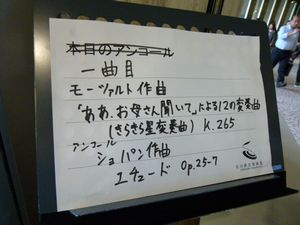 本日のアンコール
一曲目
モーツァルト作曲
「ああ、お母さん聞いて」による12の変奏曲
(きらきら星変奏曲) K.265
アンコール
ショパン作曲
エチュード Op.25-7